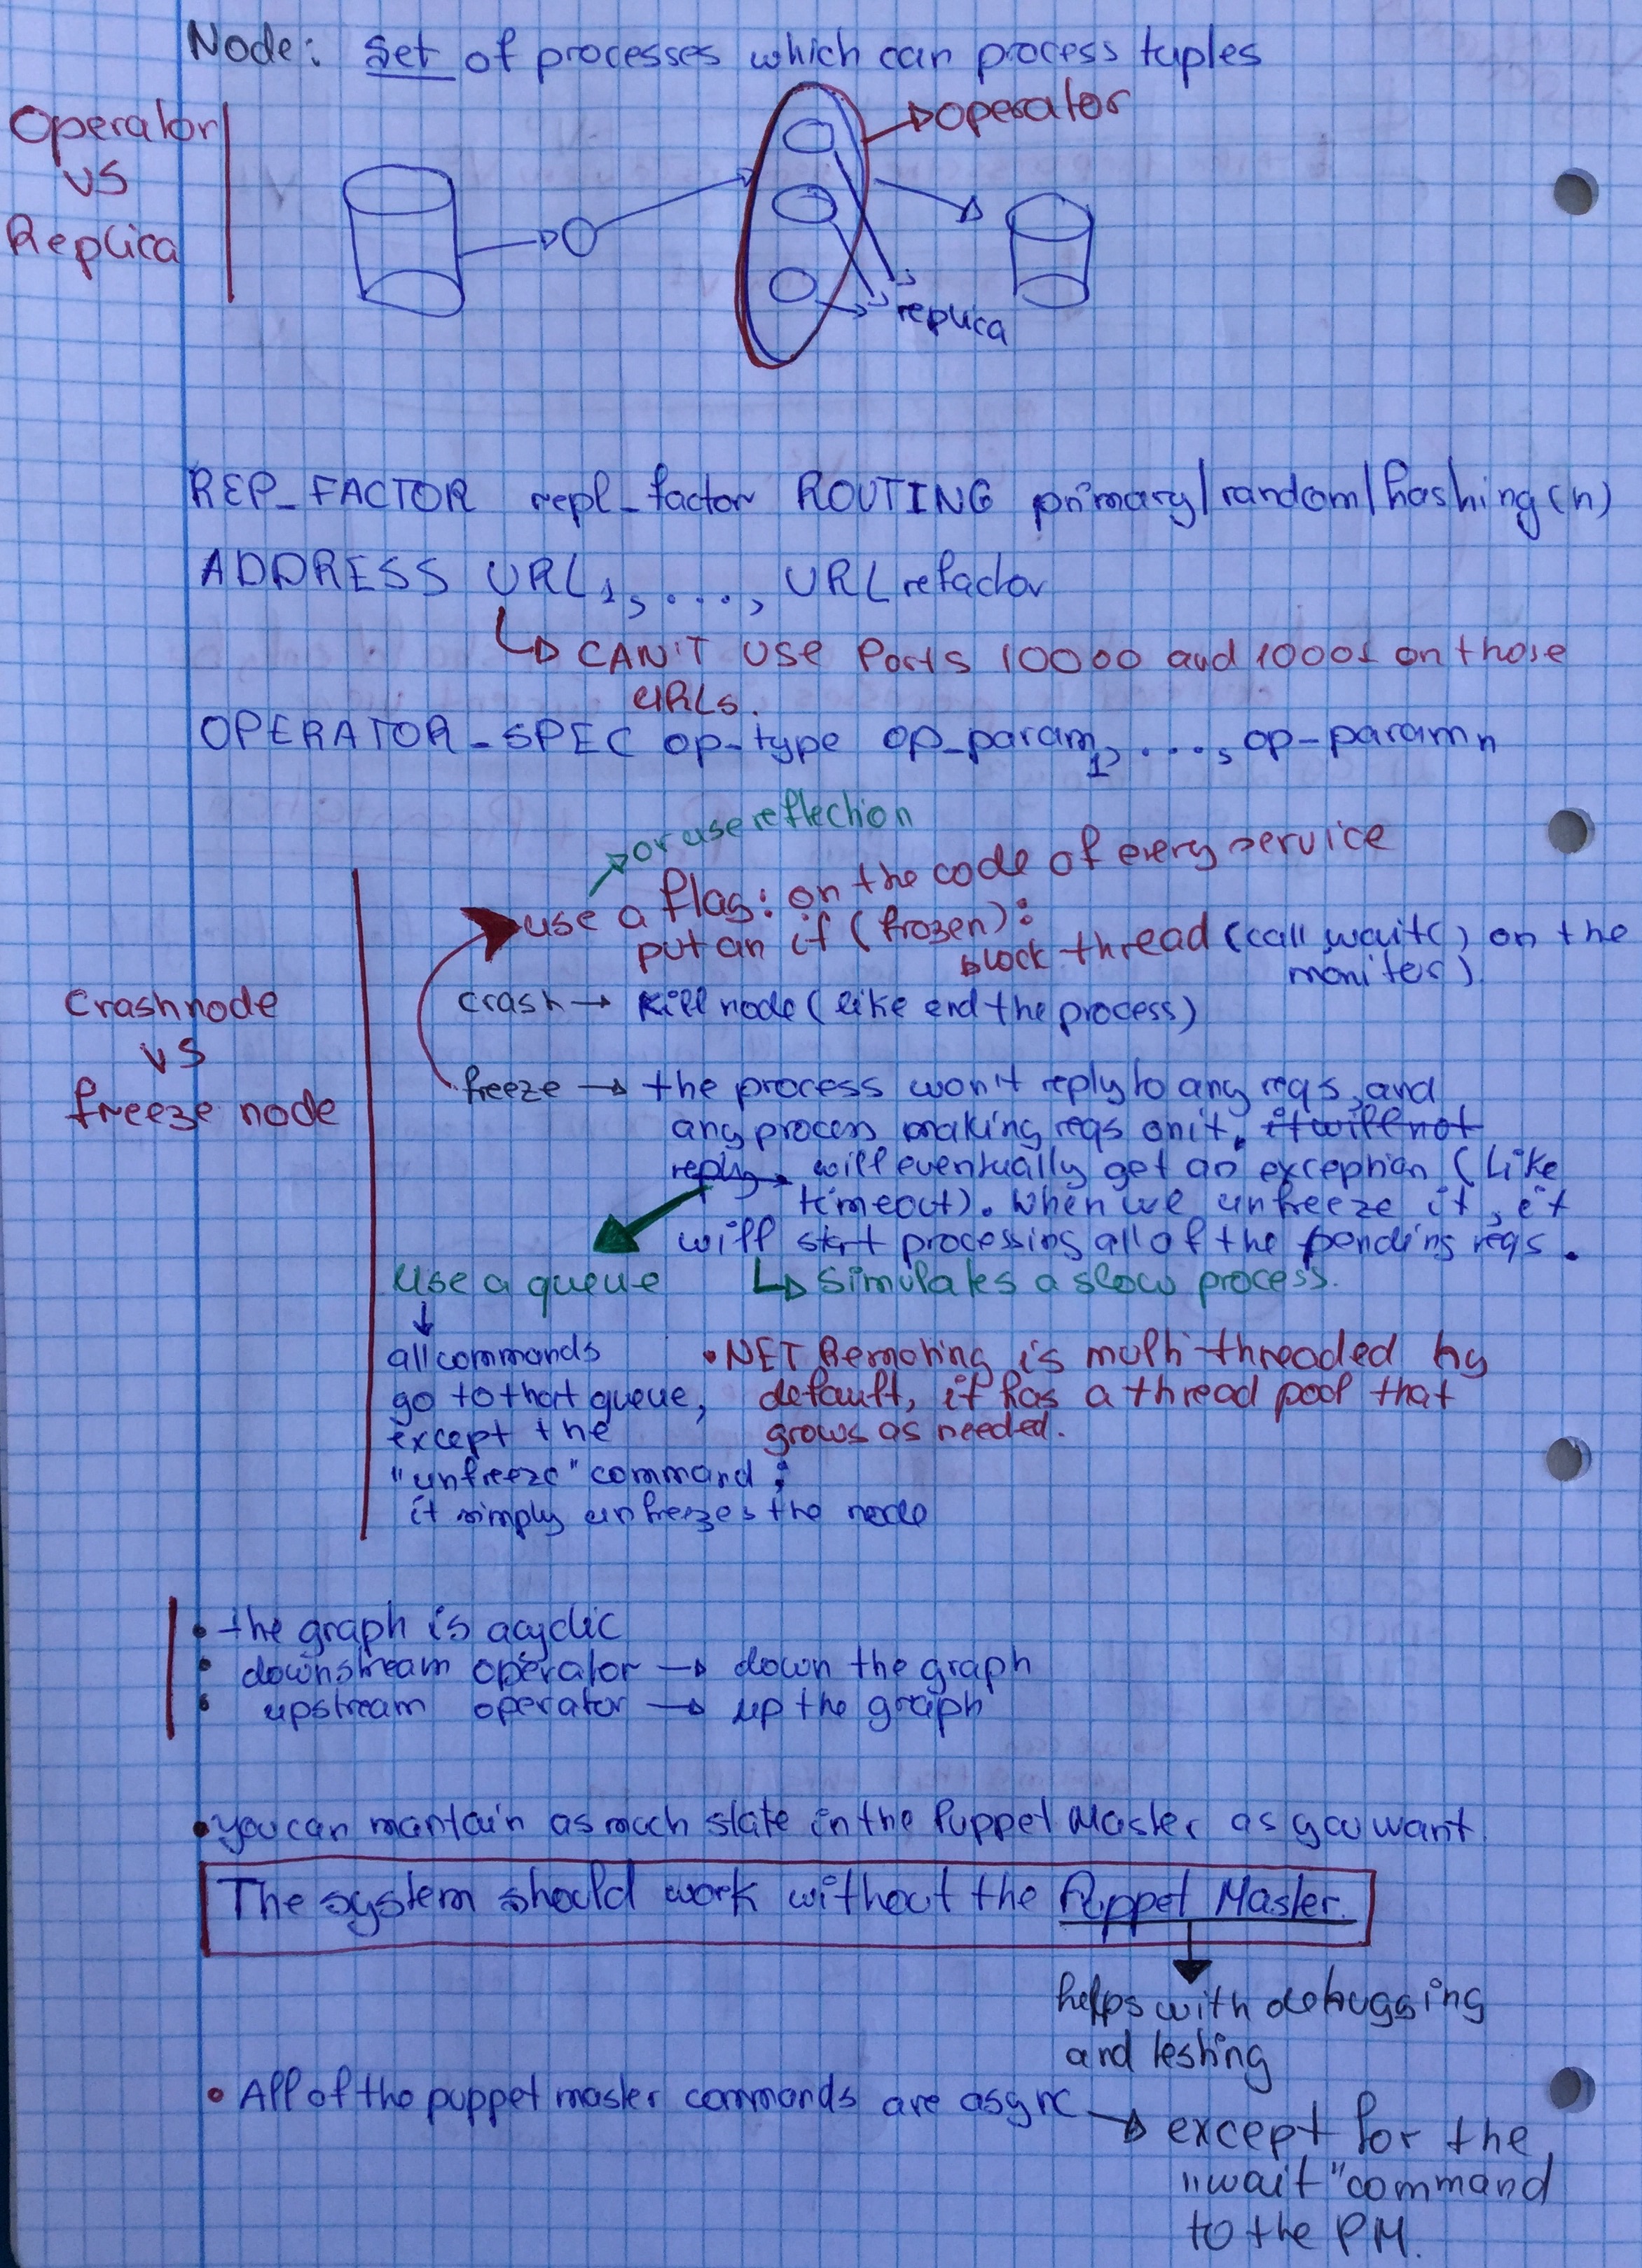 Node: set of processes which can process tuples
Operator
vs
Replica
operator
replica
REP_FACTOR repl_factor ROUTING primary/random/hashing(n)
ADDRESS URL1, ..., URL refactor
CAN'T use Ports 10000 and 10001 on those
URLs.
OPERATOR_SPEC op-type op_param1, ..., op-param n
or use reflection
use a flag: on the code of every service
put an if (frozen):
block thread (call wait() on the
monitor)
Crash node
vs
freeze node
crash → kill node (like end the process)
freeze → the process won't reply to any reqs, and
any process making reqs on it, it will not
reply → will eventually get an exception (like
timeout). When we unfreeze it, it
will start processing all of the pending reqs.
Use a queue
Simulates a slow process.
all commands
go to that queue,
except the
"unfreeze" command;
it simply unfreezes the node
.NET Remoting is multi-threaded by
default, it has a thread pool that
grows as needed.
• the graph is acyclic
• downstream operator → down the graph
• upstream operator → up the graph
• you can mantain as much state in the Puppet Master as you want
The system should work without the Puppet Master.
helps with debugging
and testing
• All of the puppet master commands are async → except for the
"wait" command
to the PM.